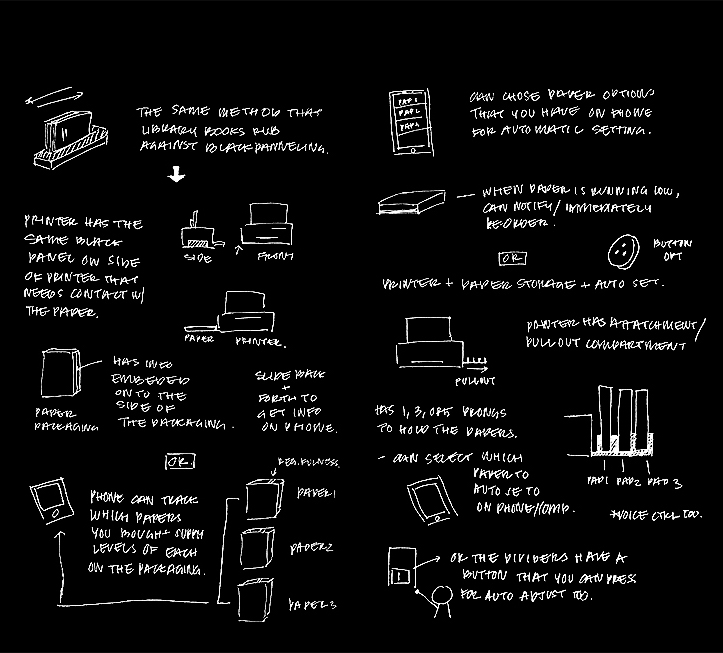 THE SAME METHOD THAT
LIBRARY BOOKS RUB
AGAINST BLACK PANNELING.
PRINTER HAS THE
SAME BLACK
PANEL ON SIDE
OF PRINTER THAT
NEEDS CONTACT W/
THE PAPER.
SIDE
FRONT
PAPER
PRINTER.
PAPER
PACKAGING
HAS INFO
EMBEDED
ONTO THE
SIDE OF
THE PACKAGING.
SLIDE BACK
+
FORTH TO
GET INFO
ON PHONE.
OR
PHONE CAN TRACK
WHICH PAPERS
YOU BOUGHT + SUPPLY
LEVELS OF EACH
ON THE PACKAGING.
PAPER 1
PAPER 2
PAPER 3
PAP 1
PAP 2
PAP 3
CAN CHOSE PAPER OPTIONS
THAT YOU HAVE ON PHONE
FOR AUTOMATIC SETTING.
WHEN PAPER IS RUNNING LOW,
CAN NOTIFY/IMMEDIATELY
REORDER.
OR
BUTTON
OPT
PRINTER + PAPER STORAGE + AUTO SET.
PRINTER HAS ATTATCHMENT/
PULLOUT COMPARTMENT
PULLOUT
HAS 1, 3, OR 5 PRONGS
TO HOLD THE PAPERS.
- CAN SELECT WHICH
PAPER TO
AUTO SET TO
ON PHONE/COMP.
PAP 1
PAP 2
PAP 3
*VOICE CTRL TOO.
OR THE DIVIDERS HAVE A
BUTTON THAT YOU CAN PRESS
FOR AUTO ADJUST TOO.